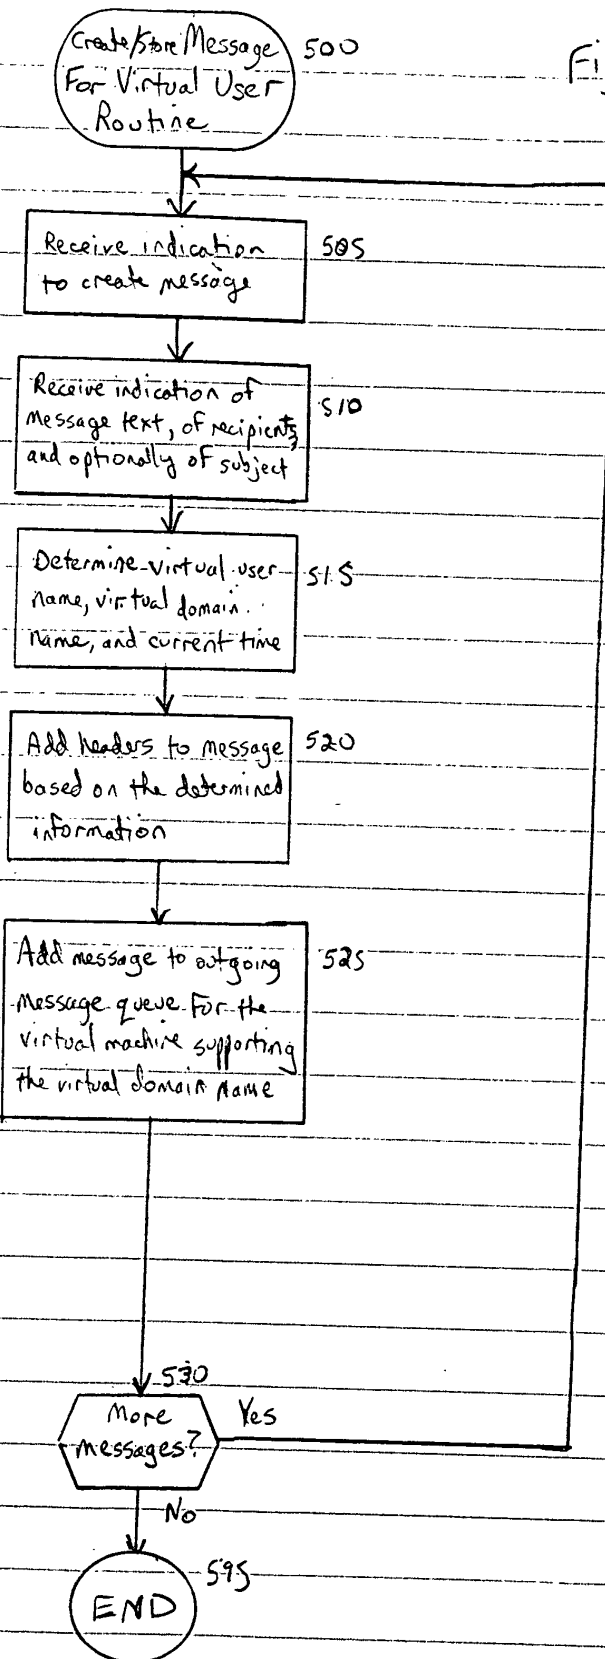 Create/Store Message 500
For Virtual User
Routine
Fig
Receive indication 505
to create message
Receive indication of 510
Message text, of recipients,
and optionally of subject
Determine virtual user 515
name, virtual domain
name, and current time
Add headers to message 520
based on the determined
information
Add message to outgoing 525
Message queue For the
virtual machine supporting
the virtual domain name
530
More Yes
messages?
No
595
END